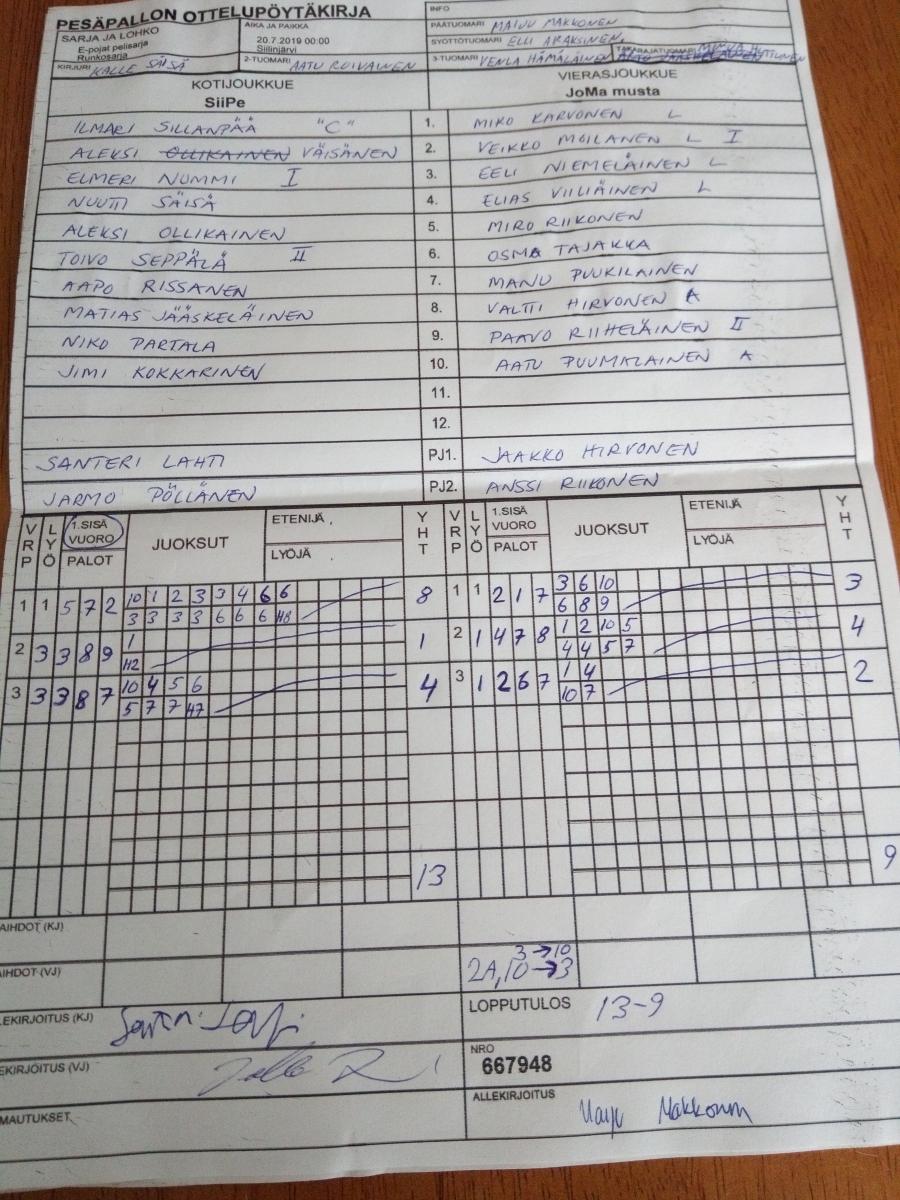 PESÄPALLON OTTELUPÖYTÄKIRJA
INFO
SARJA JA LOHKO
E-pojat pelisarja
Runkosarja
AIKA JA PAIKKA
20.7.2019 00:00
Siilinjärvi
PÄÄTUOMARI MAIJU MAKKONEN
SYÖTTÖTUOMARI ELLI ARAKSINEN
KIRJURI KALLE SÄISÄ
2-TUOMARI AATU ROIVAINEN
3-TUOMARI VENLA HÄMÄLÄINEN
TAKARAJATUOMARI
KOTIJOUKKUE
SiiPe
VIERASJOUKKUE
JoMa musta
ILMARI SILLANPÄÄ "C" 1. MIKO KARVONEN L
ALEKSI OLLIKAINEN VÄISÄNEN 2. VEIKKO MOILANEN L I
ELMERI NUMMI I 3. EELI NIEMELÄINEN L
NUUTTI SÄISÄ 4. ELIAS VIILIÄINEN L
ALEKSI OLLIKAINEN 5. MIRO RIIKONEN
TOIVO SEPPÄLÄ II 6. OSMA TAJAKKA
AAPO RISSANEN 7. MANU PUUKILAINEN
MATIAS JÄÄSKELÄINEN 8. VALTTI HIRVONEN A
NIKO PARTALA 9. PAAVO RIIHELÄINEN II
JIMI KOKKARINEN 10. AATU PUUMALAINEN A
11.
12.
SANTERI LAHTI PJ1. JAAKKO HIRVONEN
JARMO PÖLLÄNEN PJ2. ANSSI RIIKONEN
VRP LYÖ 1.SISÄ VUORO PALOT JUOKSUT ETENIJÄ LYÖJÄ YHT VRP LYÖ 1.SISÄ VUORO PALOT JUOKSUT ETENIJÄ LYÖJÄ YHT
10 1 2 3 3 4 6 6 3 6 10
1 1 5 7 2 8 1 1 2 1 7 3
3 3 3 3 6 6 6 H8 6 8 9
1 1 2 10 5
2 3 3 8 9 1 2 1 4 7 8 4
H2 4 4 5 7
10 4 5 6 1 4
3 3 3 8 7 4 3 1 2 6 7 2
5 7 7 H7 10 7
13 9
AIHDOT (KJ)
AIHDOT (VJ) 3→10
2A, 10→3
LEKIRJOITUS (KJ)
LOPPUTULOS 13-9
EKIRJOITUS (VJ)
NRO
667948
MAUTUKSET
ALLEKIRJOITUS Maiju Makkonen